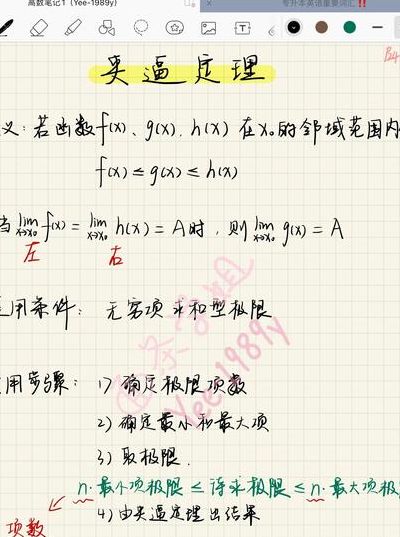 高数笔记1 (Yee-1989y)
专升本英语重要词汇 !!
P24
夹逼定理
义: 若函数f(x)、g(x)、h(x) 在x₀的邻域范围内
f(x) ≤ g(x) ≤ h(x)
当 lim x→x₀ f(x) = lim x→x₀ h(x) = A时, 则 lim x→x₀ g(x) = A
左 右
用条件: 无穷项求和型极限
用步骤: 1) 确定极限项数
2) 确定最小和最大项
3) 取极限.
n·最小项极限 ≤ 待求极限 ≤ n·最大项极
项数
4) 由夹逼定理出结果
Yee-1989y